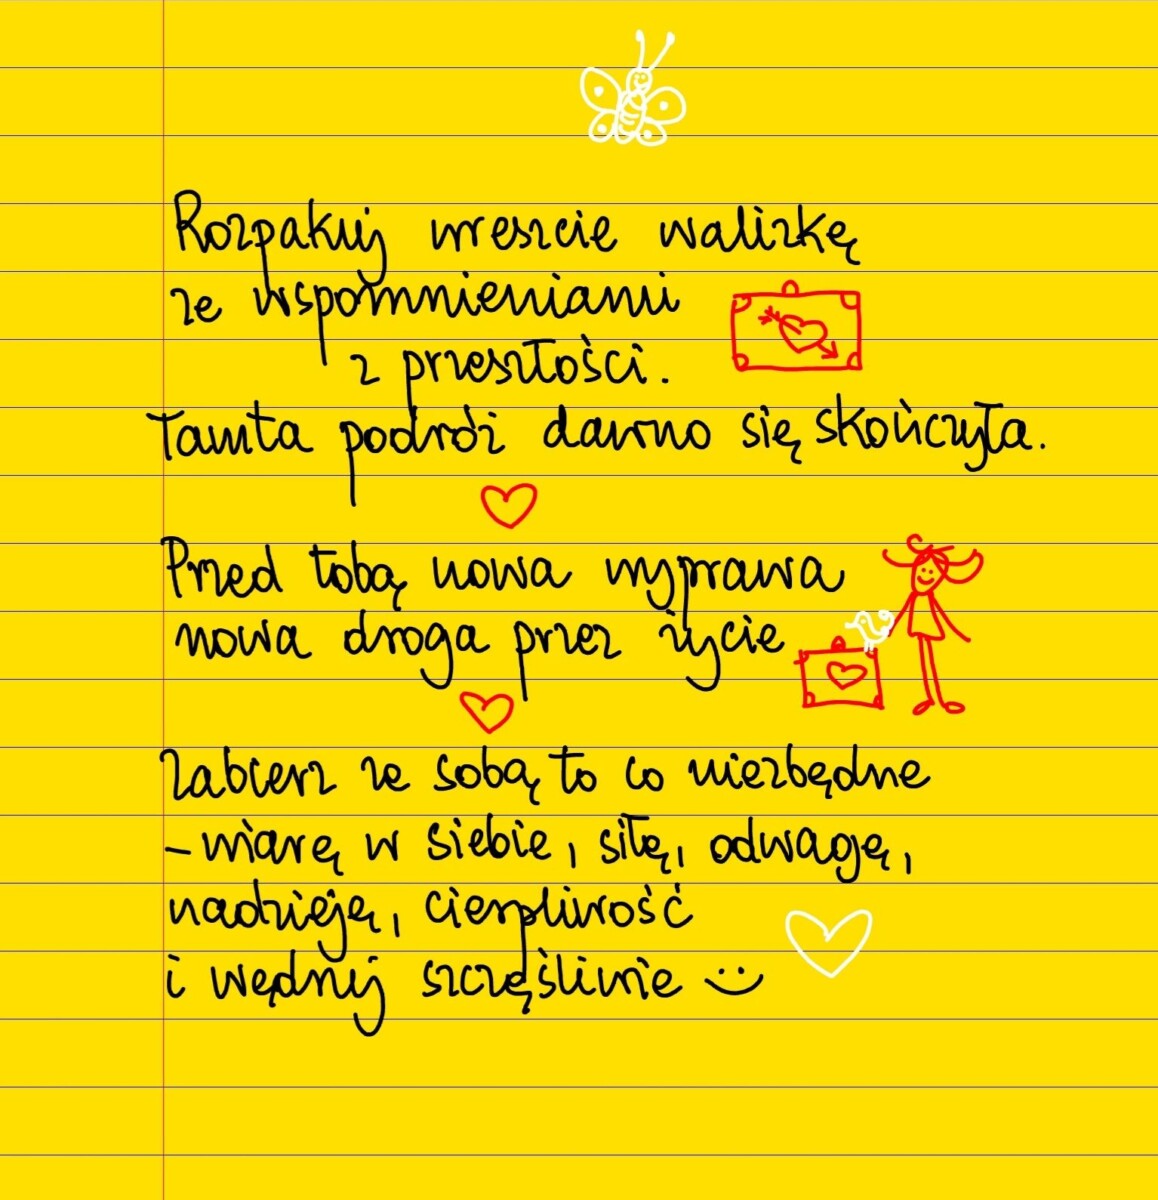 Rozpakuj wreszcie walizkę
ze wspomnieniami
z przeszłości.
Tamta podróż dawno się skończyła.
Przed tobą nowa wyprawa
nowa droga przez życie
Zabierz ze sobą to co niezbędne
- wiarę w siebie, siłę, odwagę,
nadzieję, cierpliwość
i wędruj szczęśliwie